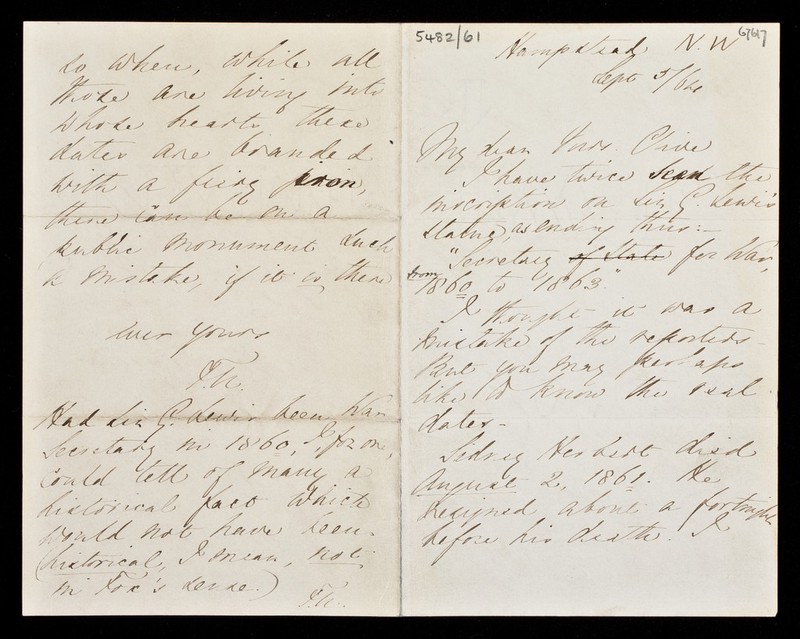 5482/61
67617
Hampstead N.W
Sept 5/64
My dear Mrs. Clive
I have twice seen the
inscription on Sir G. Lewis's
statue, as ending thus:-
"Secretary of State for War,
from 1860 to 1863."
I thought it was a
mistake of the reporters -
But you may perhaps
like to know the real
dates -
Sidney Herbert died
August 2, 1861. He
resigned about a fortnight
before his death. I
so when, while all
those are living into
whose hearts these
dates are branded
with a fiery iron,
there can be on a
public monument such
a mistake, if it is there
ever yours
F.N.
Had Sir G. Lewis been War
Secretary in 1860, I, for one,
could tell of many a
historical fact which
would not have been.
(historical, I mean, not
in Fox's sense.)
F.N.